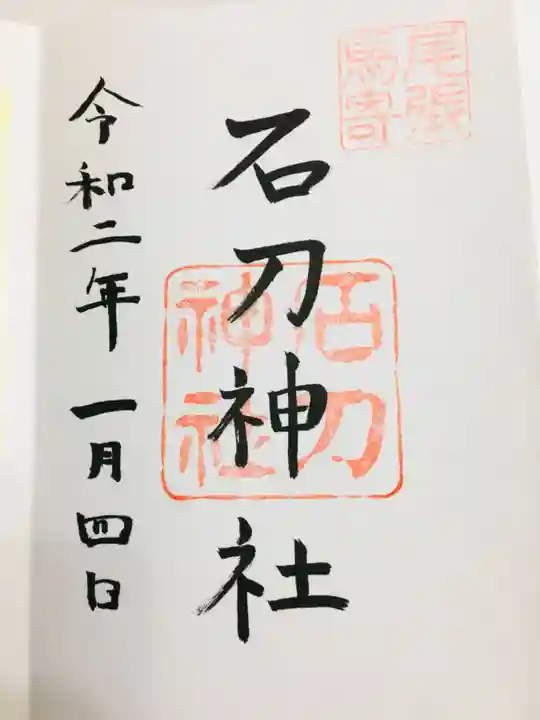 尾張
馬寄
石刀神社
石刀
神社
令和二年 一月四日